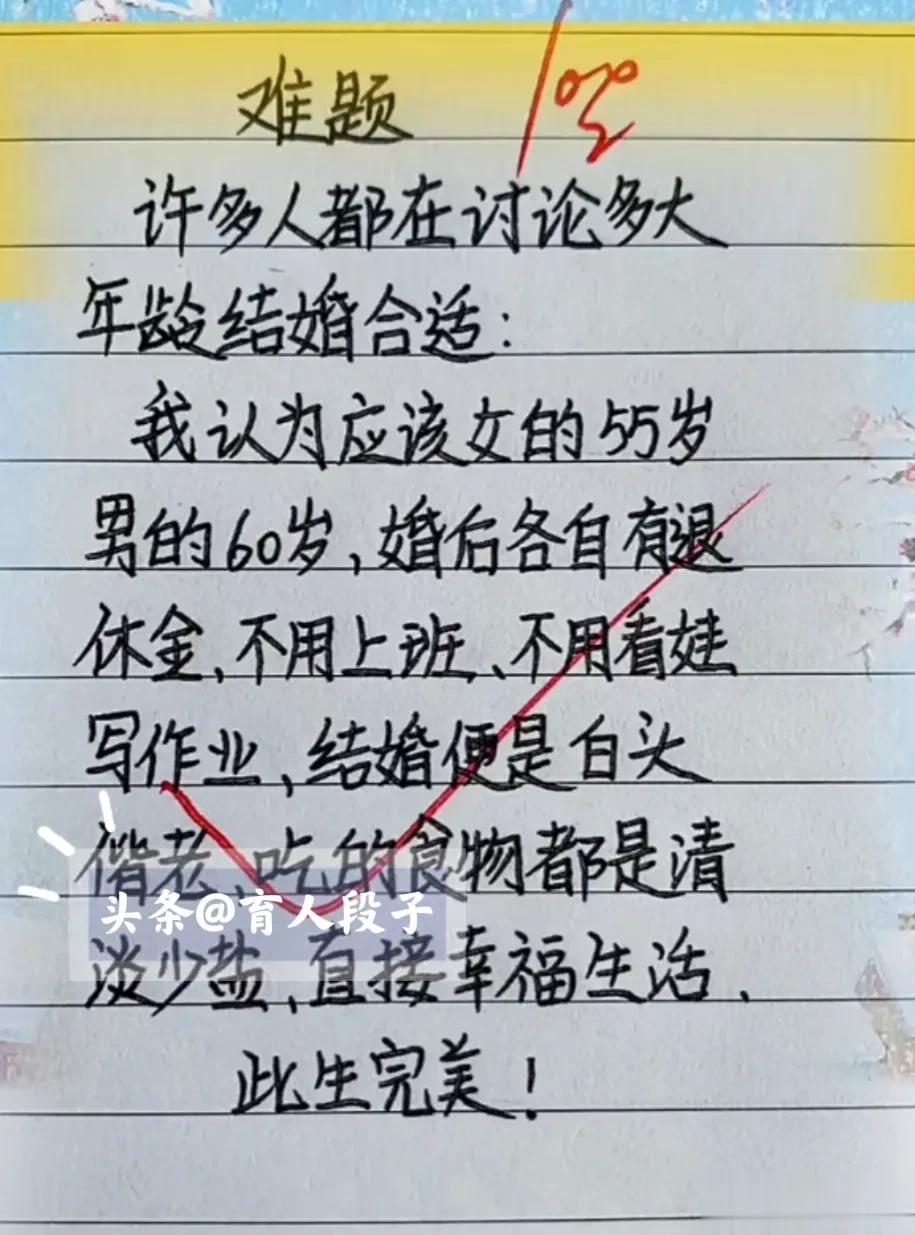 难题 100
许多人都在讨论多大
年龄结婚合适:
我认为应该女的55岁
男的60岁,婚后各自有退
休金,不用上班、不用看娃
写作业,结婚便是白头
偕老、吃的食物都是清
头条@育人段子
淡少盐,直接幸福生活.
此生完美!